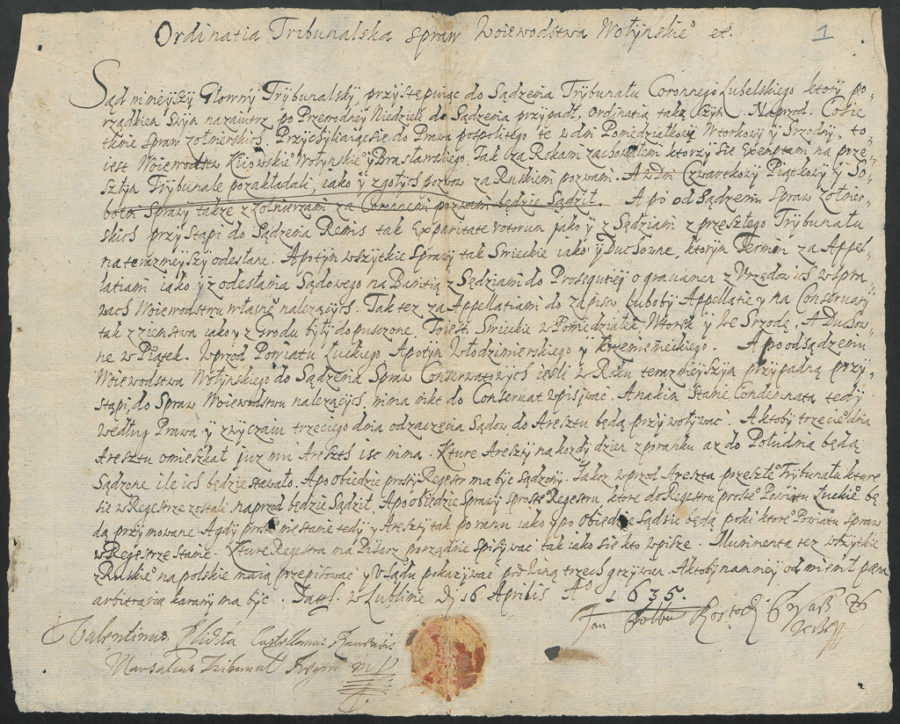 Ordinatia Tribunalska spraw Woiewodstwa Wołynskie° et.
1
Sąd ninieyszy Głowny Trybunalsky, przystępuiąc do Sądzenia Trybunału Coronnego Lubelskiego ktory po
rządkiem swym nazaiutrz po Przewodney Niedzieli do Sądzenia przypadł, Ordinatią taką czyni. Naprzod. Cosie
tknie Spraw żołnierskich, Przychylaiącsię do Prawa pospolitego te w dni Poniedziałkowy Wtorkowy y Srzodny, to
iest Woiewodstw Kiiowskie° Wołynskie° y Bracławskiego, Tak za Rokami zachowałem ktorzy sie Exemptami na prze
szłym Trybunale pozakładali, iako y zgołych pozwow za Ruskiemi pozwami. A w dni Czwartkowy Piątkowy y So
botni Sprawy także z żołnierzami za Coronnemi pozwami będzie Sądził. A po od Sądzeniu Spraw żołnier
skich przystąpi do Sądzenia Remis tak Ex paritate votorum iako y z Sędziami z przeszłego Trybunału
na teraznieyszy odesłane. A potym wszytkie Sprawy tak Swieckie iako y Duchowne, ktorym Termin za Appel
latiami iako y z odesłania Sądowego na Banitią z Sędziami do Prosequtiey o gravamen z Urzędow ich w Spra
wach Woiewodstwu własnie należących. Tak tez za Appellatiami do zapisow Luboby Appellatie y na Conservaty
tak z Ziemstwa iako y z Grodu były dopuszczone. Toiest Swieckie w Poniedziałek, Wtorek y We Srzodę, A Duchow
ne w Piątek. Wprzod Powiatu Łuckiego A potym Włodzimierskiego y Krzemienieckiego. A po odsądzeniu
Woiewodstwa Wołynskiego do Sądzenia Spraw Conservatowych iesli w Roku terazmieyszym przypadną przy
stąpi, do Spraw Woiewodstwu należących, nima nikt do Conservat wpisywac. A na kim Stanie Condemnata tedy
według Prawa y zwyczaiu trzeciego dnia od zaczęcia Sądow do Aresztu będą przywoływac. A ktoby trzecie° dnia
Aresztu omieszkał iuz mu Areszt isc nima. Kture Areszty na kozdy dzien z poranku az do Południa będą
Sądzone ile ich będzie stawało. A po Obiedzie prosty Regestr ma byc Sądzony. Także wprzod Areszta przeszłe° Trybunału kture
sie w Regestrze zostali naprzod będzie Sądził. A po Obiedzie Sprawy z proste° Regestru ktore do Regestru proste° Powiatu Łuckie° bę
dą przymowane. A gdy proste° niestanie tedy y Areszty tak po ranu iako y po Obiedzie Sądzic będą poki ktore° Powiatu Spraw
w Regestrze Stanie. Kture Regestra ma Pisarz porządnie Spisywac tak iako sie kto wpisze. Munimenta tez wszytkie
z Ruskie° na polskie maią przepisowac y u Sądu pokazywac pod winą trzech grzywien. A ktoby namniey odmienił pæna
arbitraria karany ma byc. Datt. w Lublinie dj 16 Aprilis A° 1635.
Valentinus Castellanus
Marsalcus Tribunał Regni mp
Jan